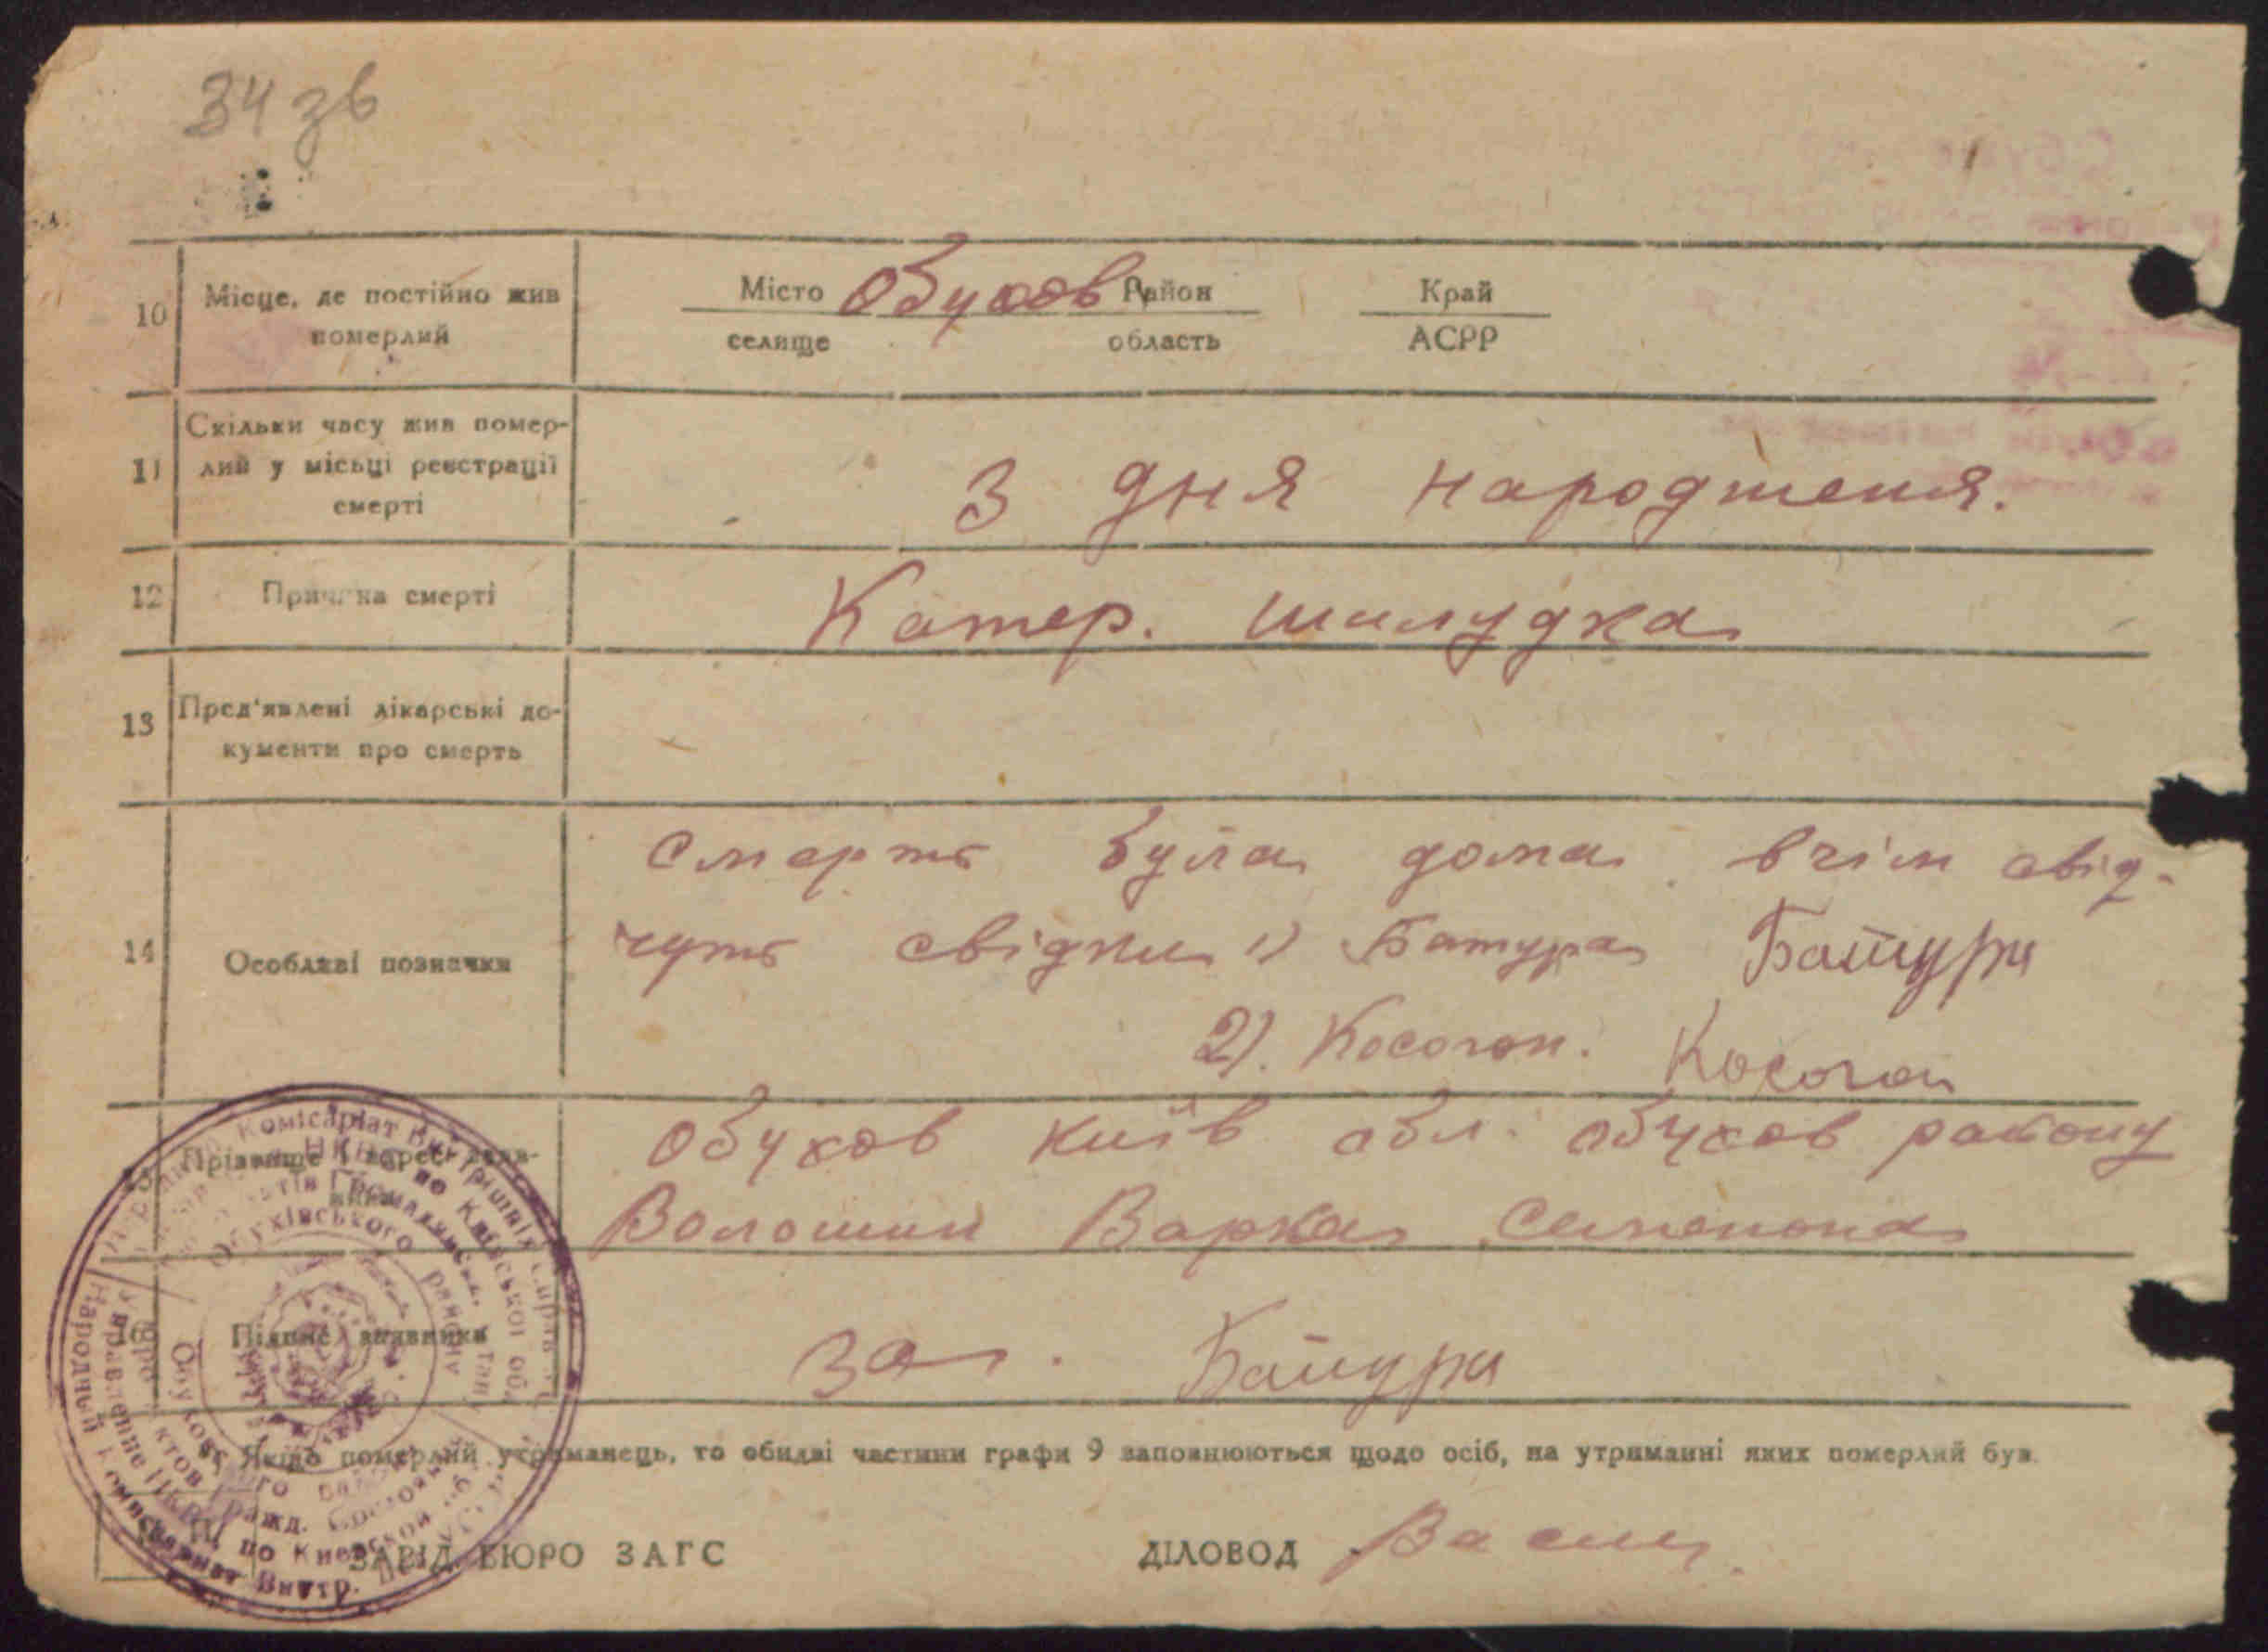 34 зв
10 Місце, де постійно жив померлий
Місто Обухов Район Край
селище область АСРР
11 Скільки часу жив помер-
лий у місьці реєстрації
смерті
З дня народженя.
12 Причина смерті
Катер. шилудка
13 Пред'явлені лікарські до-
кументи про смерть
14 Особливі позначки
Смерть була дома вчім свід-
чуть свідки 1) Батура Батура
2). Косогон. Косогон
15 Прізвище і адреса заяв-
ника
Обухов Київ обл. Обухов району
Волошин Варка Семенона
16 Підпис заявника
За Батура
Якщо померлий утриманець, то обидві частини графи 9 заповнюються щодо осіб, на утриманні яких померлий був.
ЗАВІД. БЮРО ЗАГС
ДІЛОВОД
Народний Комісаріат Внутрішніх
НКВС по Київської обл.
Обухівського району
Управление НКВД по Киевской
Обуховского